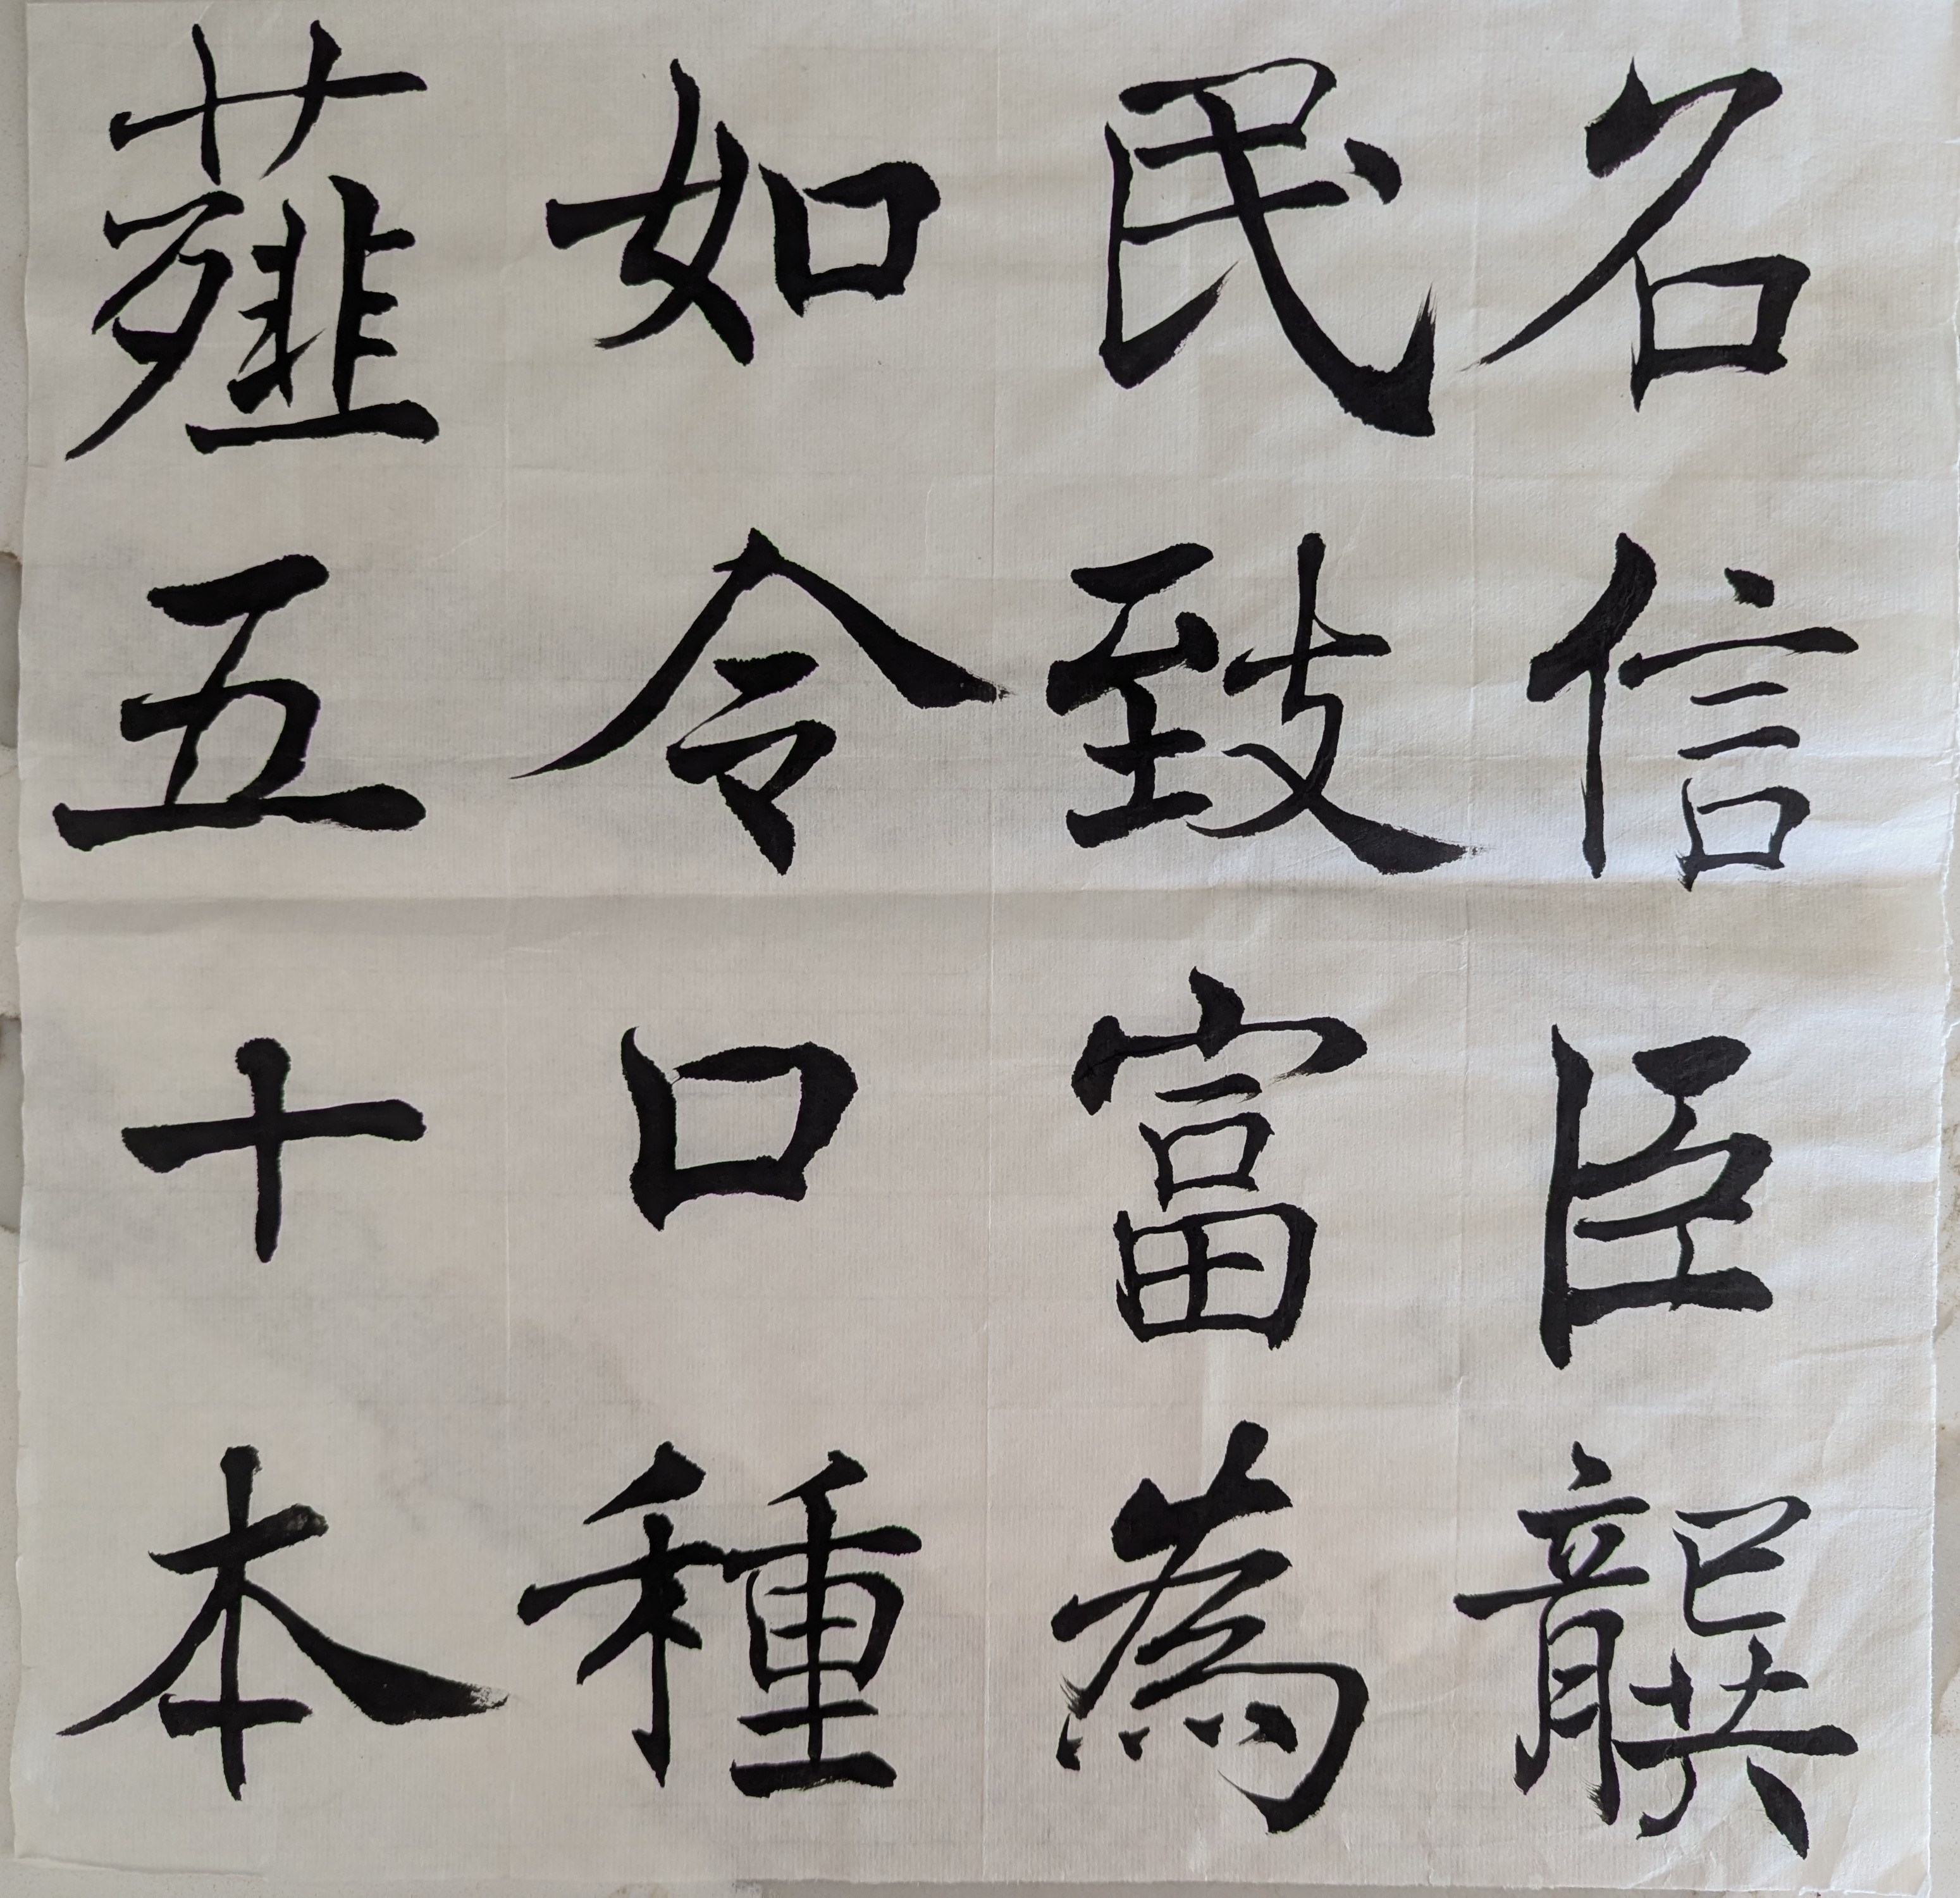 名信臣龔
民致富為
如令口種
薤五十本